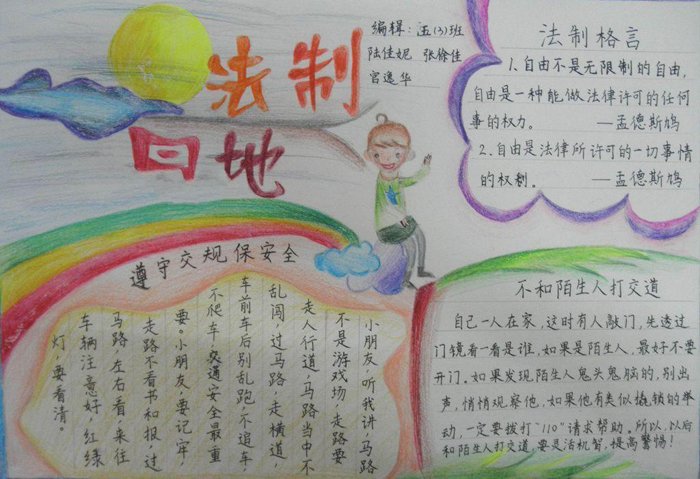 法制
园地
编辑：五（3）班
陆佳妮 张徐佳
宫逸华
法制格言
1.自由不是无限制的自由，
自由是一种能做法律许可的任何
事的权力。 —孟德斯鸠
2.自由是法律所许可的一切事情
的权利。 —孟德斯鸠
遵守交规保安全
小朋友，听我讲，马路
不是游戏场，走路要
走人行道，马路当中不
乱闯，过马路，走横道，
车前车后别乱跑，不追车，
不爬车，交通安全最重
要。小朋友，要记牢，
走路不看书和报，过
马路，左右看，来往
车辆注意好，红绿
灯，要看清。
不和陌生人打交道
自己一人在家，这时有人敲门，先透过
门镜看一看是谁，如果是陌生人，最好不要
开门。如果发现陌生人鬼头鬼脑的，别出
声，悄悄观察他，如果他有类似撬锁的举
动，一定要拨打"110"请求帮助。所以，以后
和陌生人打交道，要灵活机智，提高警惕！